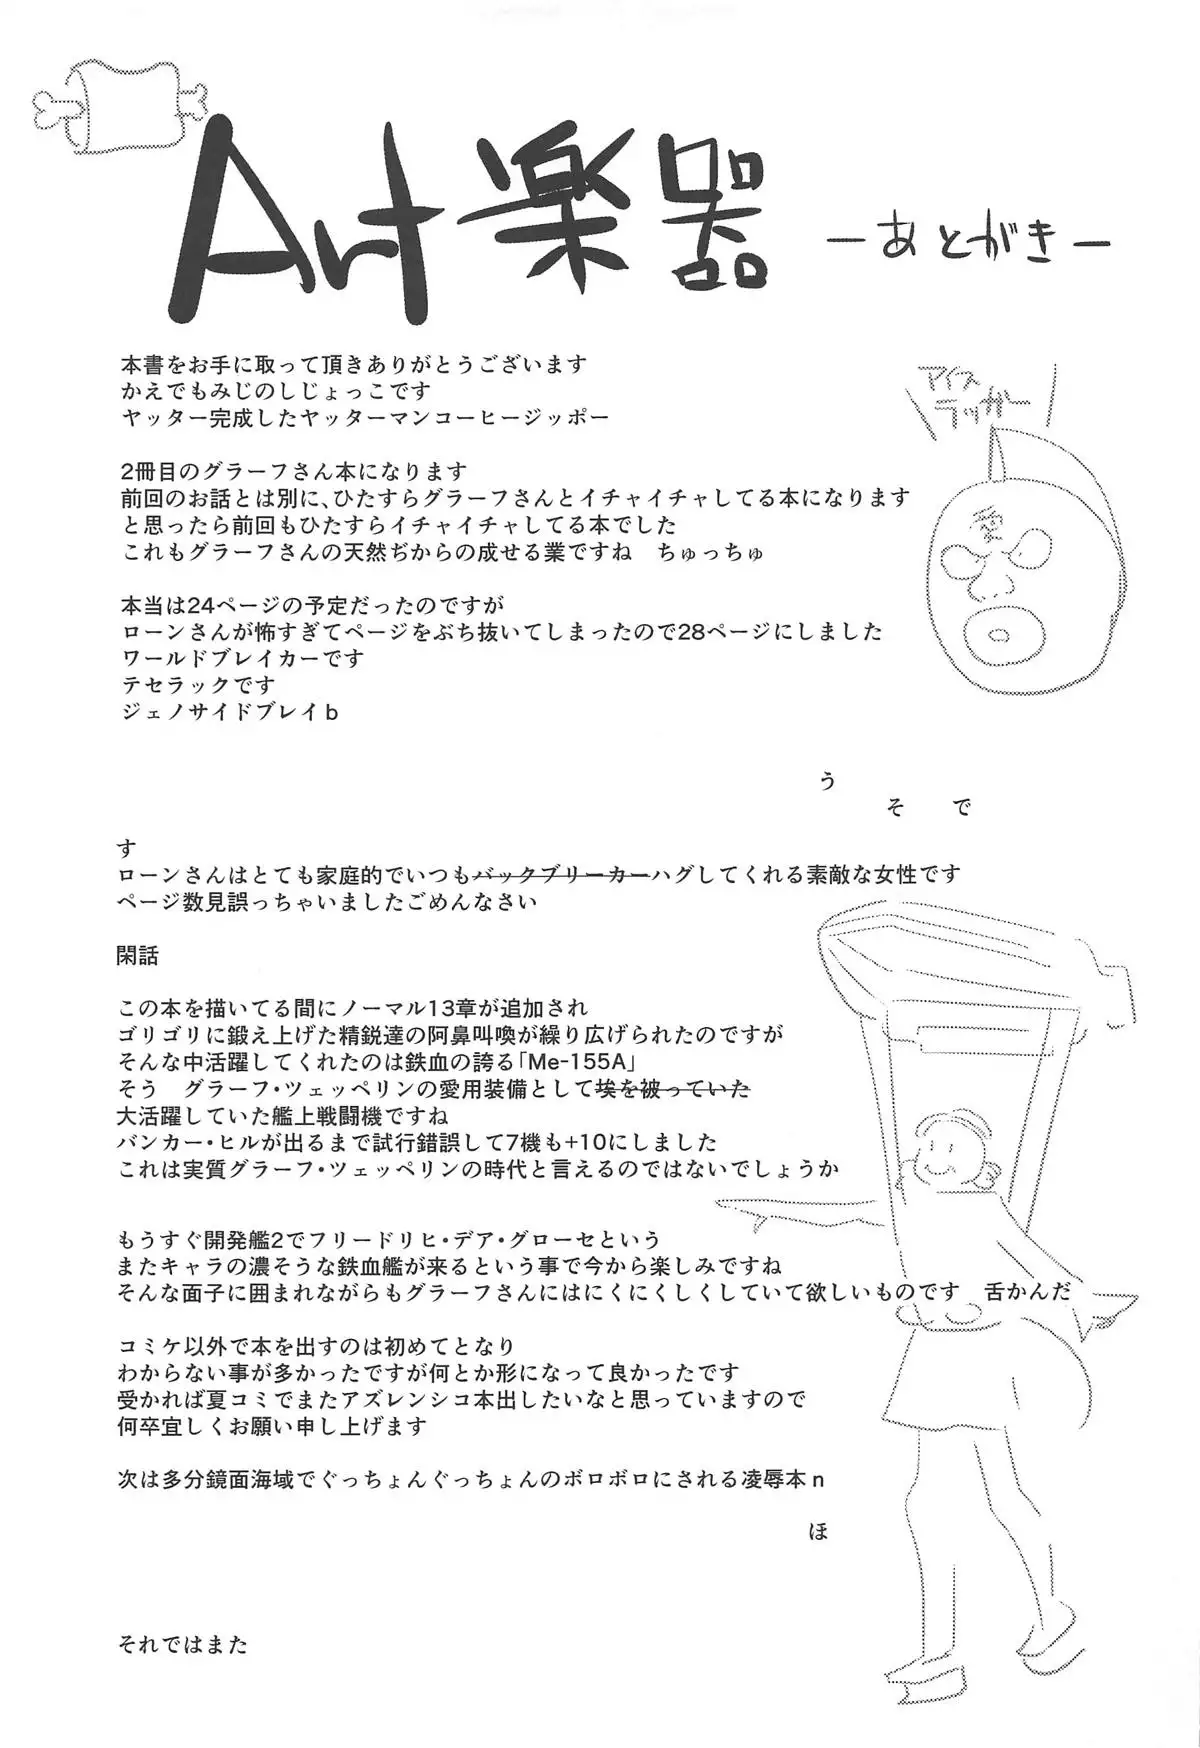 Art楽器 ーあとがきー
本書をお手に取って頂きありがとうございます
かえでもみじのしじょっこです
ヤッター完成したヤッターマンコーヒージッポー
アイス
ラッガー
愛
2冊目のグラーフさん本になります
前回のお話とは別に、ひたすらグラーフさんとイチャイチャしてる本になります
と思ったら前回もひたすらイチャイチャしてる本でした
これもグラーフさんの天然ぢからの成せる業ですね　ちゅっちゅ
本当は24ページの予定だったのですが
ローンさんが怖すぎてページをぶち抜いてしまったので28ページにしました
ワールドブレイカーです
テセラックです
ジェノサイドブレイb
う
そ　で
す
ローンさんはとても家庭的でいつもバックブリーカーハグしてくれる素敵な女性です
ページ数見誤っちゃいましたごめんなさい
閑話
この本を描いてる間にノーマル13章が追加され
ゴリゴリに鍛え上げた精鋭達の阿鼻叫喚が繰り広げられたのですが
そんな中活躍してくれたのは鉄血の誇る「Me-155A」
そう　グラーフ・ツェッペリンの愛用装備として埃を被っていた
大活躍していた艦上戦闘機ですね
バンカー・ヒルが出るまで試行錯誤して7機も+10にしました
これは実質グラーフ・ツェッペリンの時代と言えるのではないでしょうか
もうすぐ開発艦2でフリードリヒ・デア・グローセという
またキャラの濃そうな鉄血艦が来るという事で今から楽しみですね
そんな面子に囲まれながらもグラーフさんにはにくにくしくしていて欲しいものです　舌かんだ
コミケ以外で本を出すのは初めてとなり
わからない事が多かったですが何とか形になって良かったです
受かれば夏コミでまたアズレンシコ本出したいなと思っていますので
何卒宜しくお願い申し上げます
次は多分鏡面海域でぐっちょんぐっちょんのボロボロにされる凌辱本n
ほ
それではまた